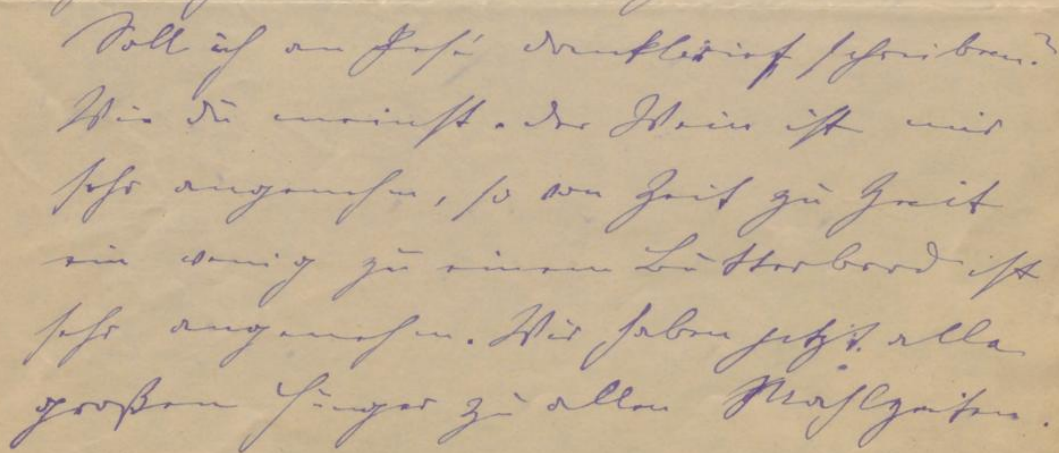 Soll ich an José dankbrief schreiben?
Wie du meinst. der Wein ist mir
sehr angenehm, so von Zeit zu Zeit
ein wenig zu einem Butterbrod ist
sehr angenehm. Wir haben jetzt alle
großen Hunger zu allen Mahlzeiten.